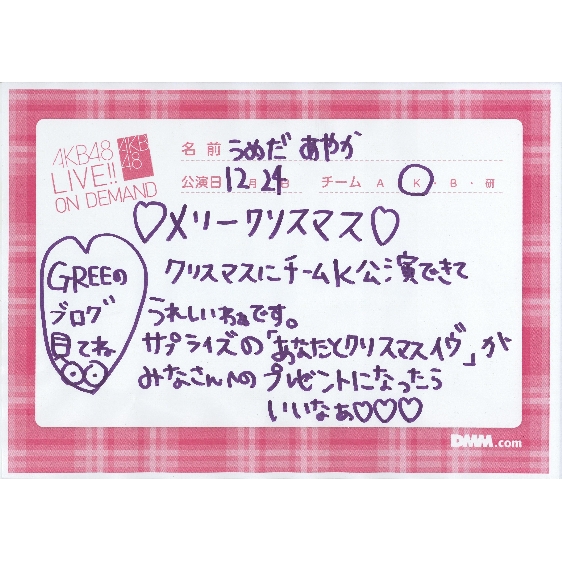 AKB48
LIVE!!
ON DEMAND
AKB
48
名前 うめだ あやか
公演日 12月24日 チーム A・K・B・研
♡メリークリスマス♡
GREEの
ブログ
見てね
クリスマスにチームK公演できて
うれしいわぁです。
サプライズの「あなたとクリスマスイヴ」が
みなさんへの プレゼントになったら
いいなぁ♡♡♡
DMM.com